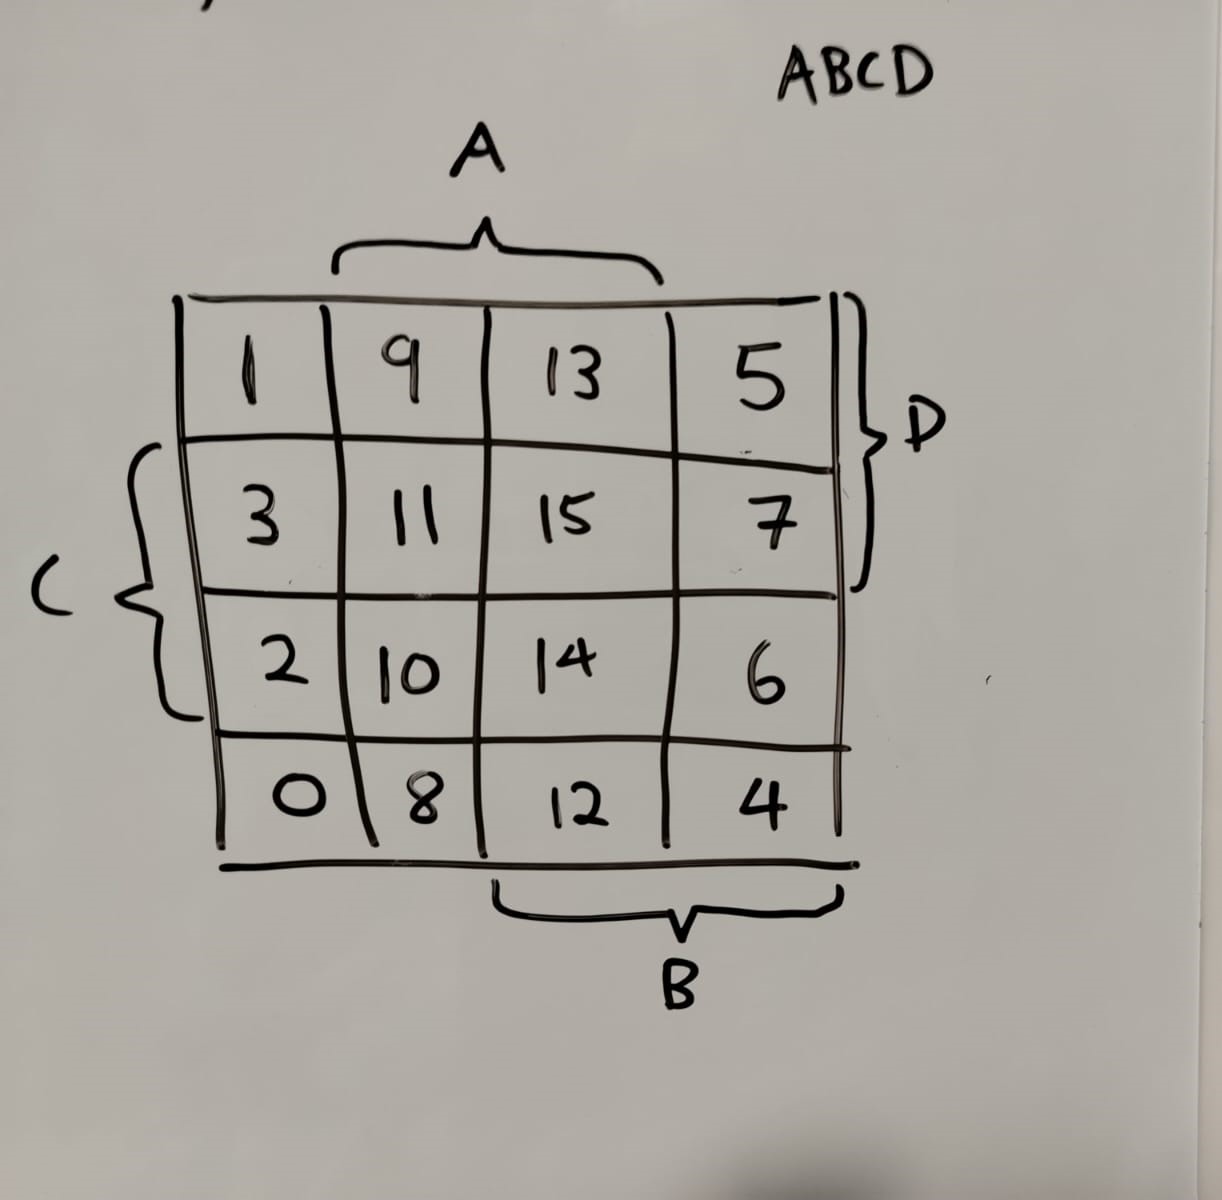 ABCD
A
1 9 13 5
D
3 11 15 7
C
2 10 14 6
0 8 12 4
B